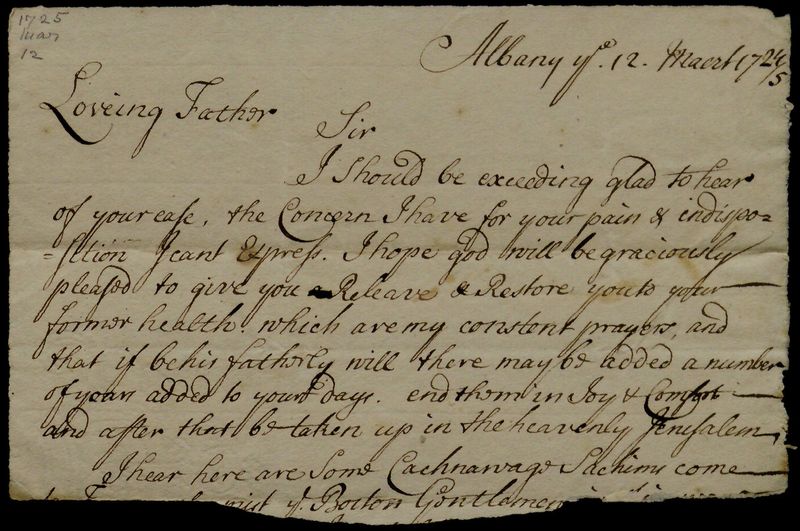 1725
Mar
12
Albany ye. 12. Maert 1724/5
Loveing Father
Sir
I Should be exceeding glad to hear
of your ease, the Concern I have for your pain & indispo=
=sition I cant Express. I hope god will be graciously
pleased to give you Releave & Restore you to your
former health, which are my constent prayers, and
that if be his fatherly will there may be added a number
of years added to your days. end them in Joy & Comfort
and after that be taken up in the heavenly Jerusalem,
I hear here are Some Cachnawage Sachims come
ye Boston Gentlemen